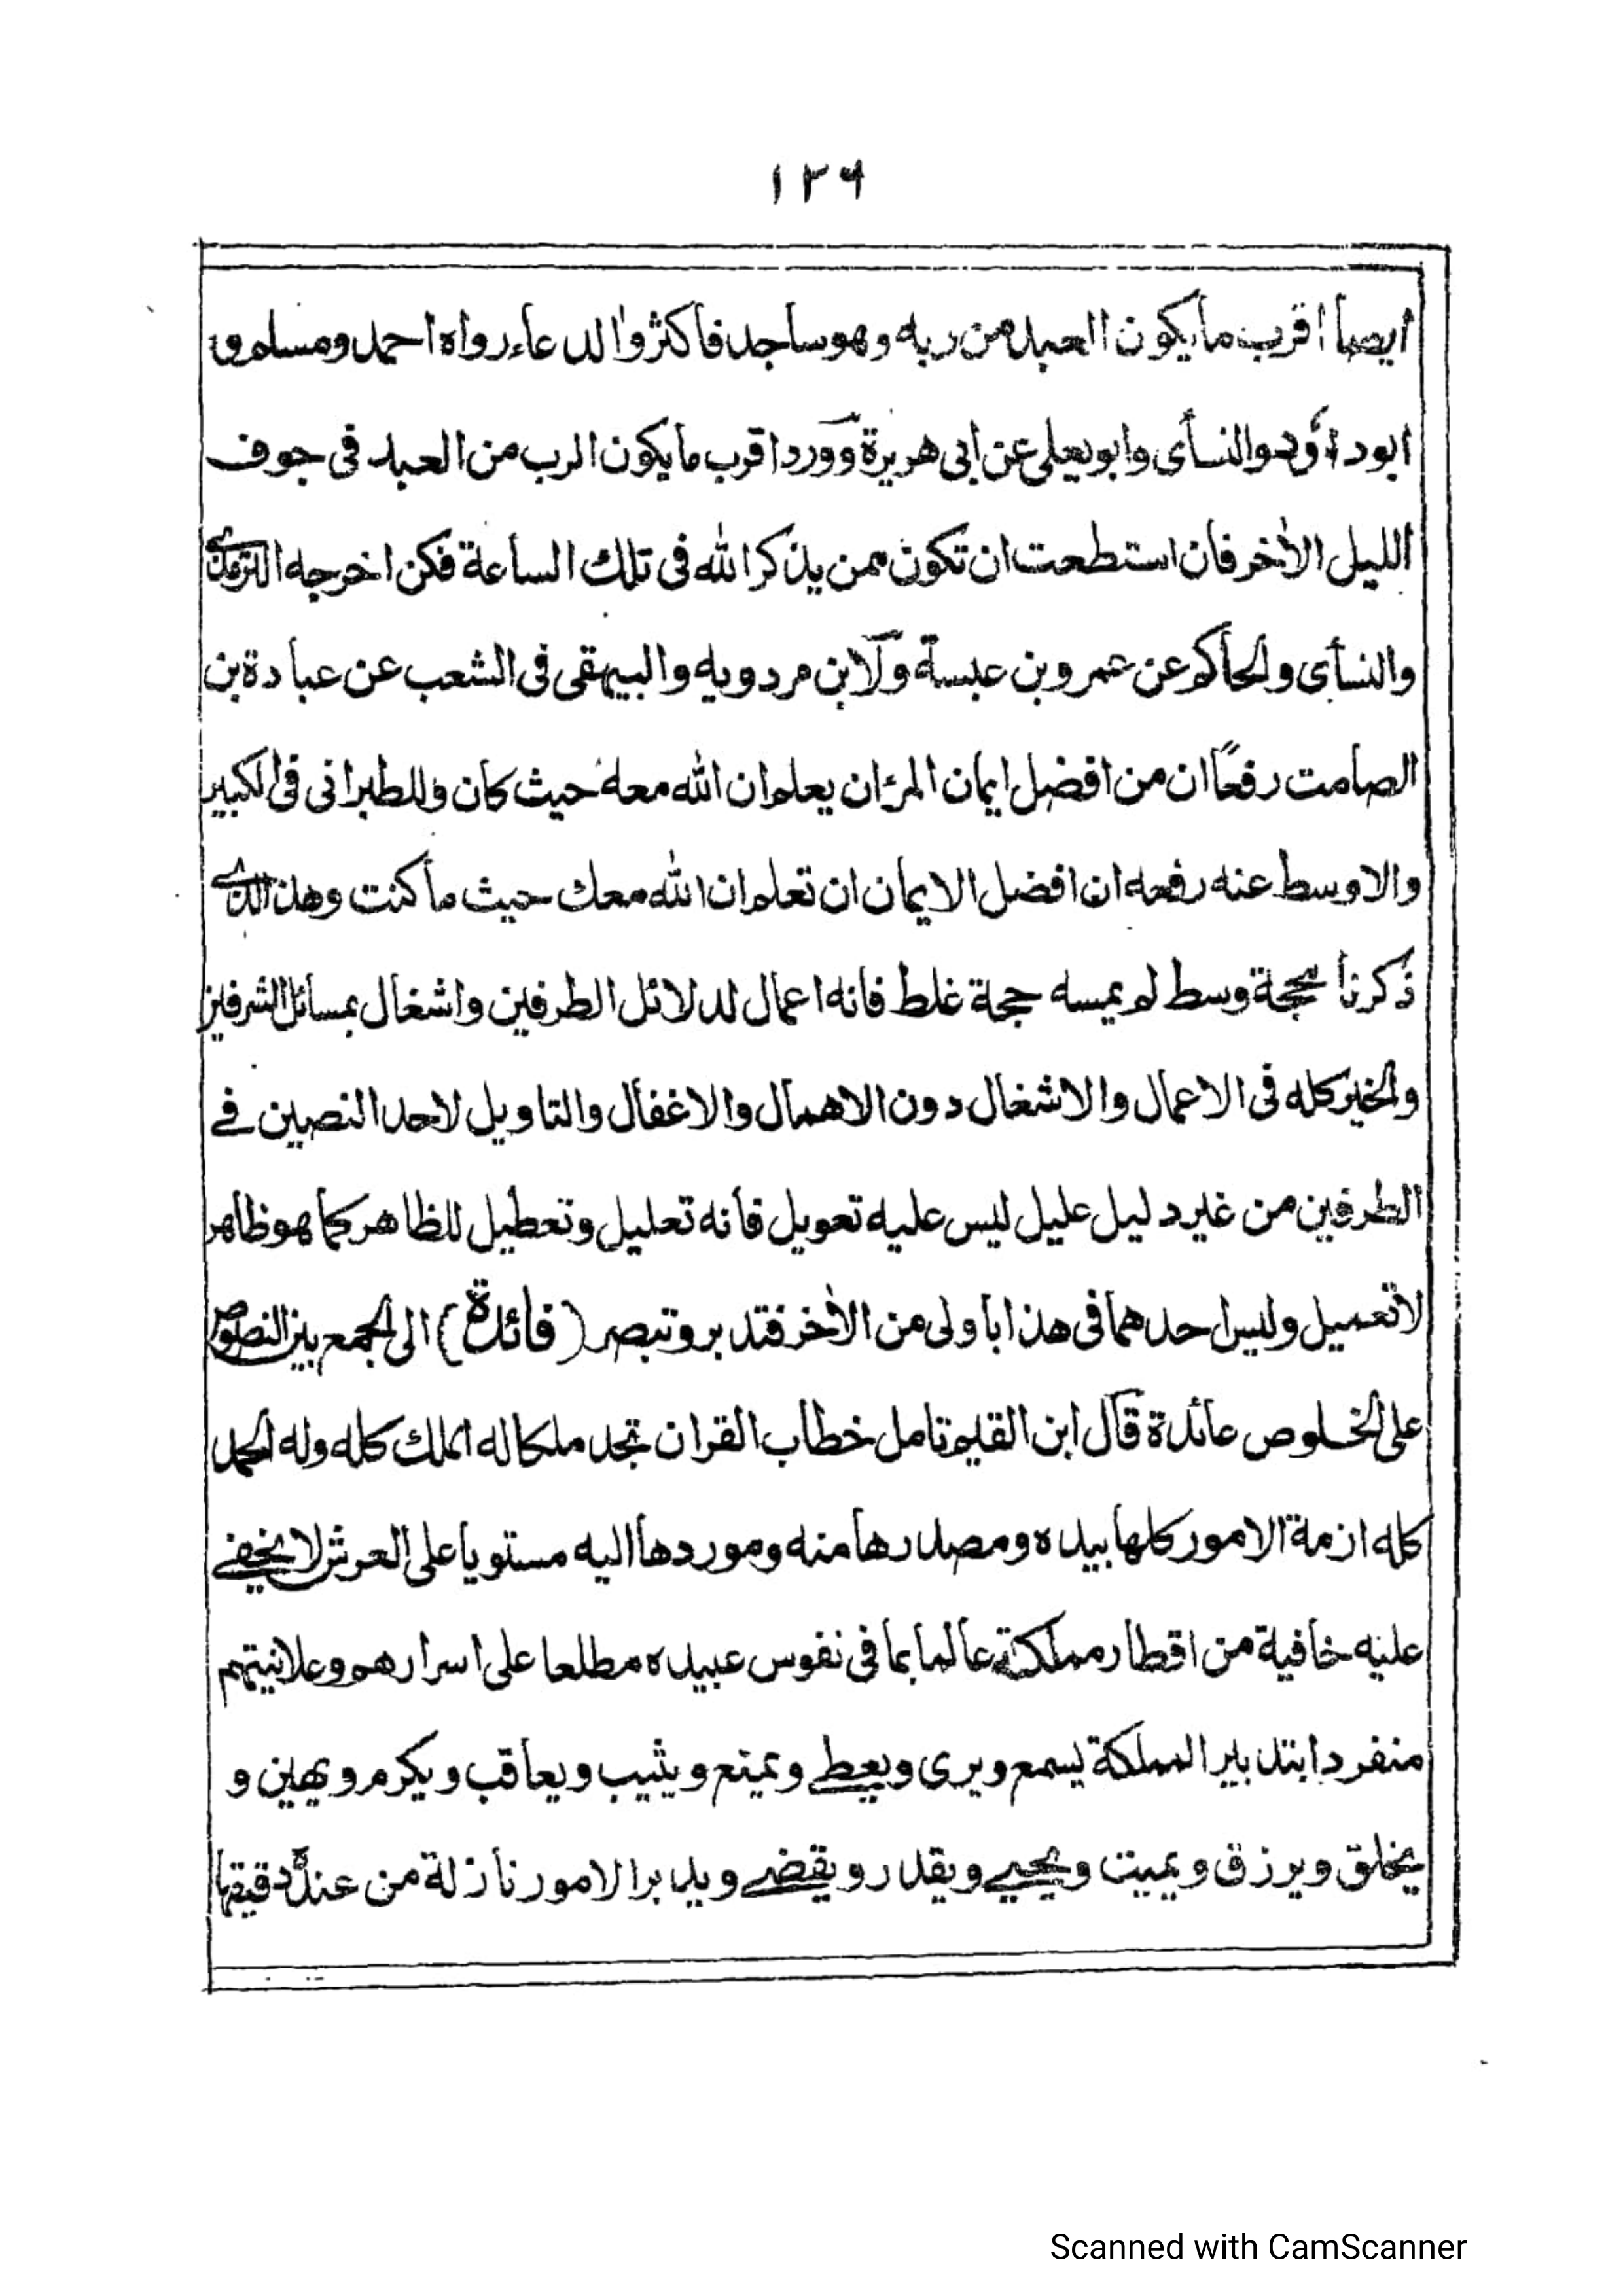 ١٢٦
ايضا اقرب ما يكون العبد من ربه وهو ساجد فاكثروا الدعاء رواه احمد ومسلم و
ابو داؤد والنسأى وابو يعلى عن ابى هريرة وورد اقرب ما يكون الرب من العبد فى جوف
الليل الأخر فان استطعت ان تكون ممن يذكر الله فى تلك الساعة فكن اخرجه الترمذى
والنسأى والحاكم عن عمرو بن عبسة ولابن مردويه والبيهقى فى الشعب عن عبادة بن
الصامت رفعًا ان من افضل ايمان المرء ان يعلم ان الله معه حيث كان وللطبرانى فى الكبير
والاوسط عنه رفعه ان افضل الايمان ان تعلم ان الله معك حيث ما كنت وهذا الذى
ذكرنا محجة وسط لم يمسه حجة غلط فانه اعمال لدلائل الطرفين واشغال بمسائل الشرفين
والخير كله فى الاعمال والاشغال دون الاهمال والاغفال والتاويل لاحد النصين فے
الطرفين من غير دليل عليل ليس عليه تعويل فانه تعليل وتعطيل للظاهر كما هو ظاهر
لا تعميل وليس احدهما فى هذا باولى من الأخر فتدبر وتبصر (فائدة) الى الجمع بين النصوص
على الخلوص عائدة قال ابن القيم تامل خطاب القران تجد ملكا له الملك كله وله الحمد
كله ازمة الامور كلها بيده ومصدرها منه وموردها اليه مستويا على العرش لا يخفے
عليه خافية من اقطار مملكته عالما بما فى نفوس عبيده مطلعا على اسرارهم وعلانيتهم
منفردا بتدبير المملكة يسمع ويرى ويعطے ويمنع ويثيب ويعاقب ويكرم ويهين و
يخلق ويرزق ويميت ويحيے ويقدر ويقضے ويدبر الامور نازلة من عنده دقيقها
Scanned with CamScanner